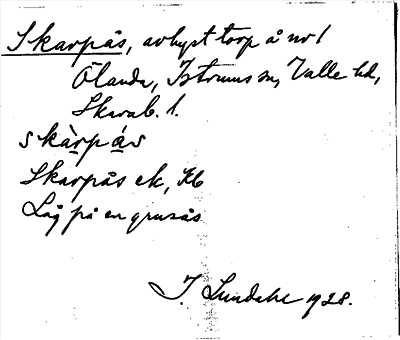 Skarpås, avhyst torp å nr 1
Ölanda, Istrums sn, Valle hd,
Skarab. l.
skàrpás
Skarpås ek, Kb
Låg på en grusås
I. Lundahl 1928.